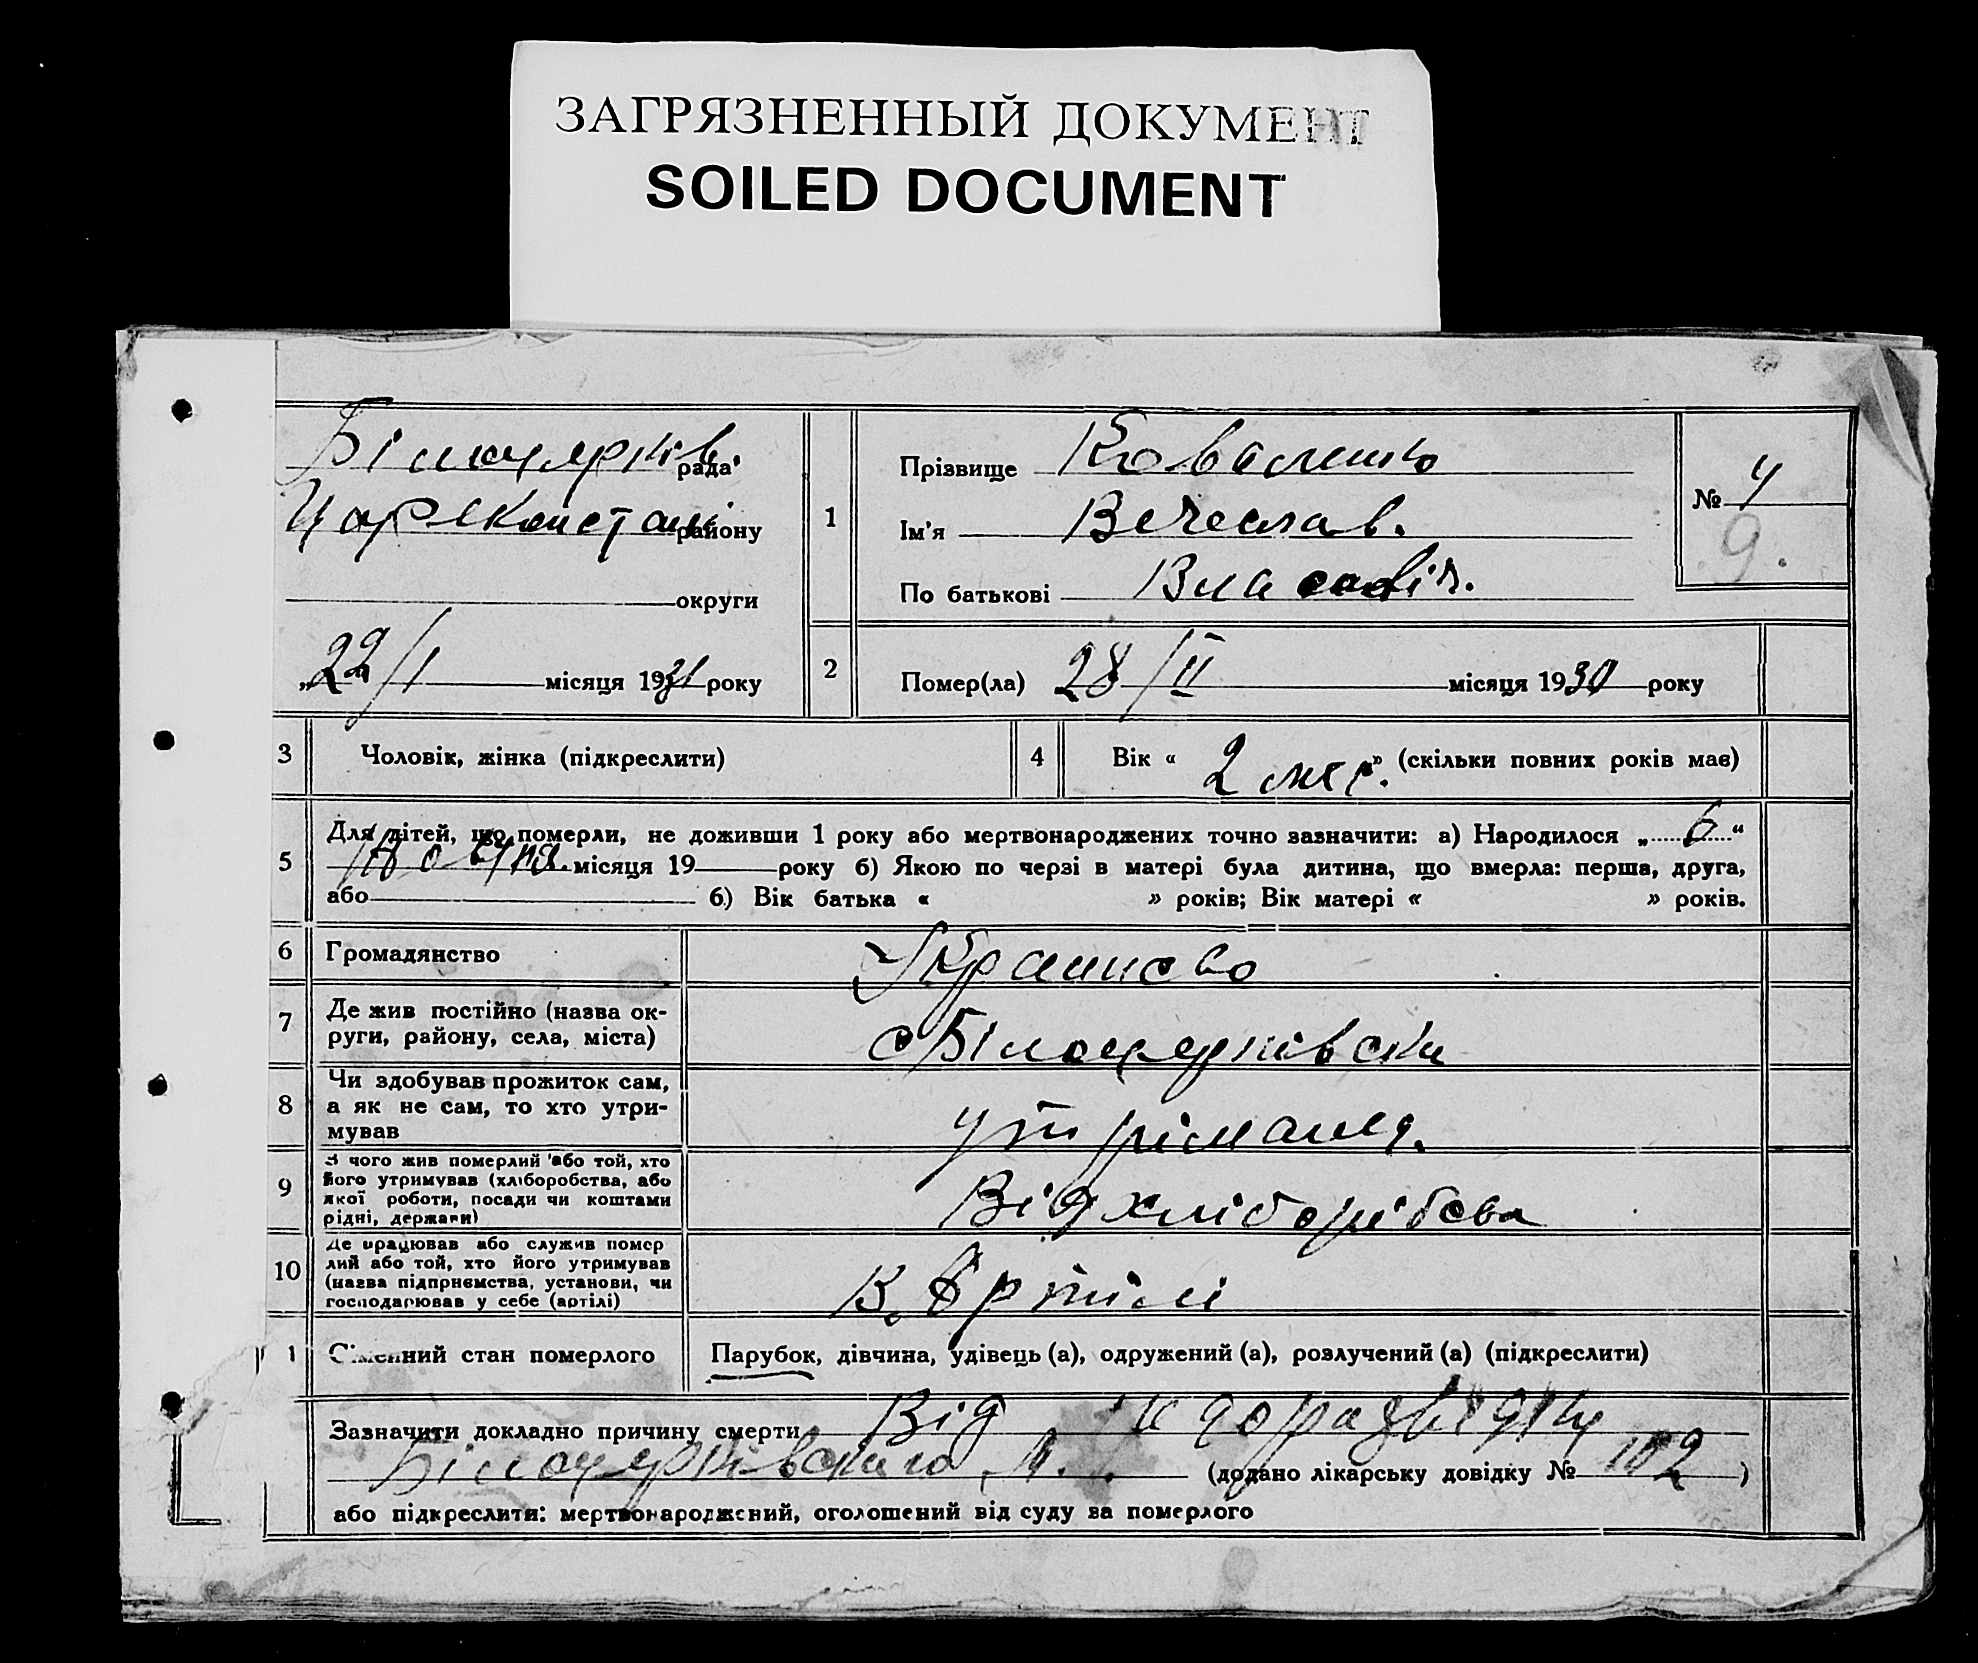 ЗАГРЯЗНЕННЫЙ ДОКУМЕНТ
SOILED DOCUMENT
Білоцерків. рада
Царekонстан району
округи
„22/I місяця 1931 року
1
Прізвище Коваленко
Ім'я Вечеслав.
По батькові Власовіч.
№ 4
9.
2
Помер(ла) 28/II місяця 1930 року
3
Чоловік, жінка (підкреслити)
4
Вік « 2 мес. » (скільки повних років має)
5
Для дітей, що померли, не доживши 1 року або мертвонароджених точно зазначити: а) Народилося „ 6 “
місяця 19 року б) Якою по черзі в матері була дитина, що вмерла: перша, друга,
або б) Вік батька « » років; Вік матері « » років.
6
Громадянство
Украинсво
7
Де жив постійно (назва ок-
руги, району, села, міста)
с Білоцерківски
8
Чи здобував прожиток сам,
а як не сам, то хто утри-
мував
утріманец.
9
З чого жив померлий або той, хто
його утримував (хліборобства, або
якої роботи, посади чи коштами
рідні, держави)
Від хліборібсва
10
Де працював або служив помер
лий або той, хто його утримував
(назва підприємства, установи, чи
господарював у себе (артілі)
В. Артілі
1
Сімейний стан померлого
Парубок, дівчина, удівець (а), одружений (а), розлучений (а) (підкреслити)
Зазначити докладно причину смерти Від недоразвідки
Білоцерківского (додано лікарську довідку № 102 )
або підкреслити: мертвонароджений, оголошений від суду за померлого